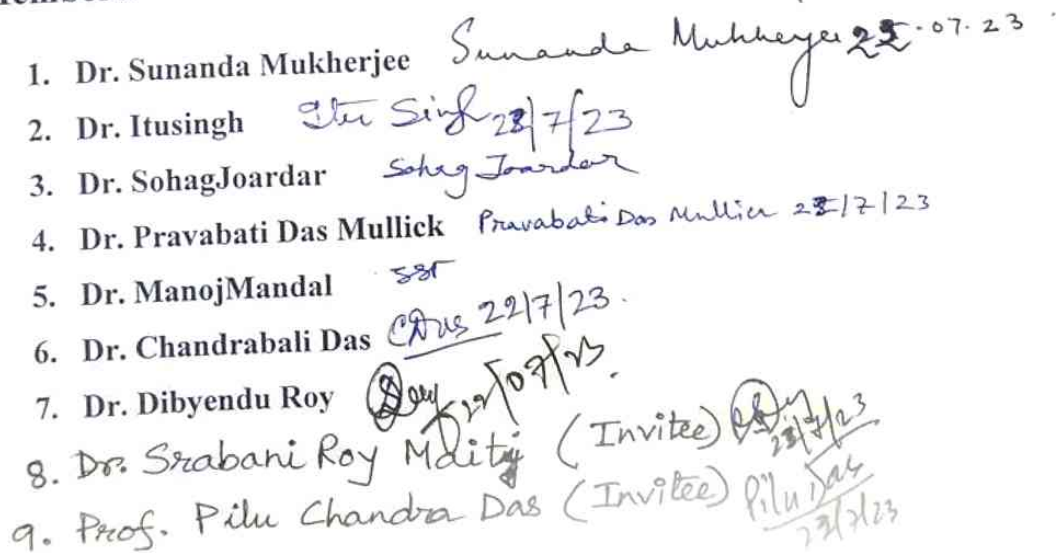 1. Dr. Sunanda Mukherjee Sunanda Mukherjee .07.23
2. Dr. Itusingh Itu Singh /7/23
3. Dr. SohagJoardar Sohag Joardar
4. Dr. Pravabati Das Mullick Pravabati Das Mullick /7/23
5. Dr. ManojMandal
6. Dr. Chandrabali Das CDas 22/7/23.
7. Dr. Dibyendu Roy 22/07/23.
8. Dr. Srabani Roy Maity (Invitee)
9. Prof. Pilu Chandra Das (Invitee) Pilu Das